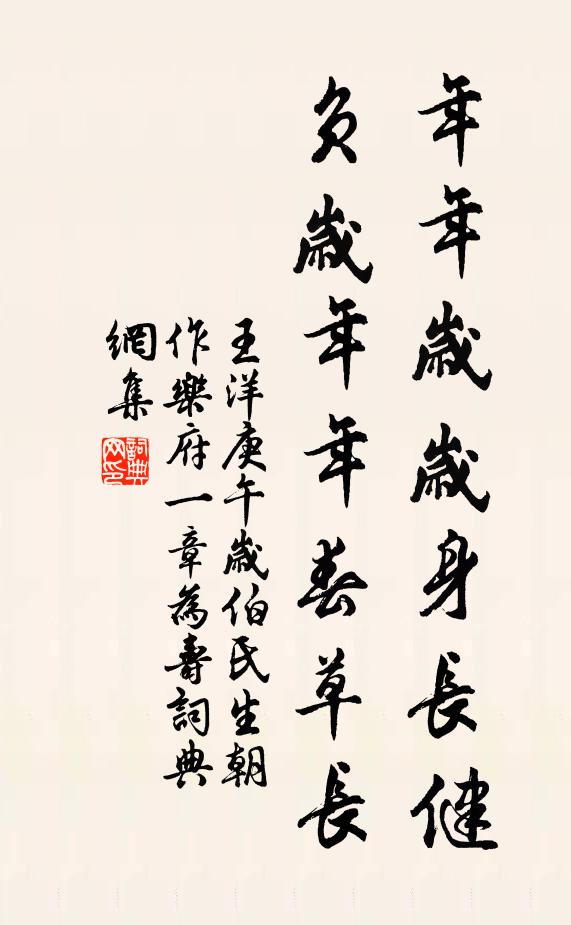 年年歲歲身長健
負歲年年春草長
王洋庚午歲伯氏生朝
作樂府一章為壽詞典
網集
詞典
网印